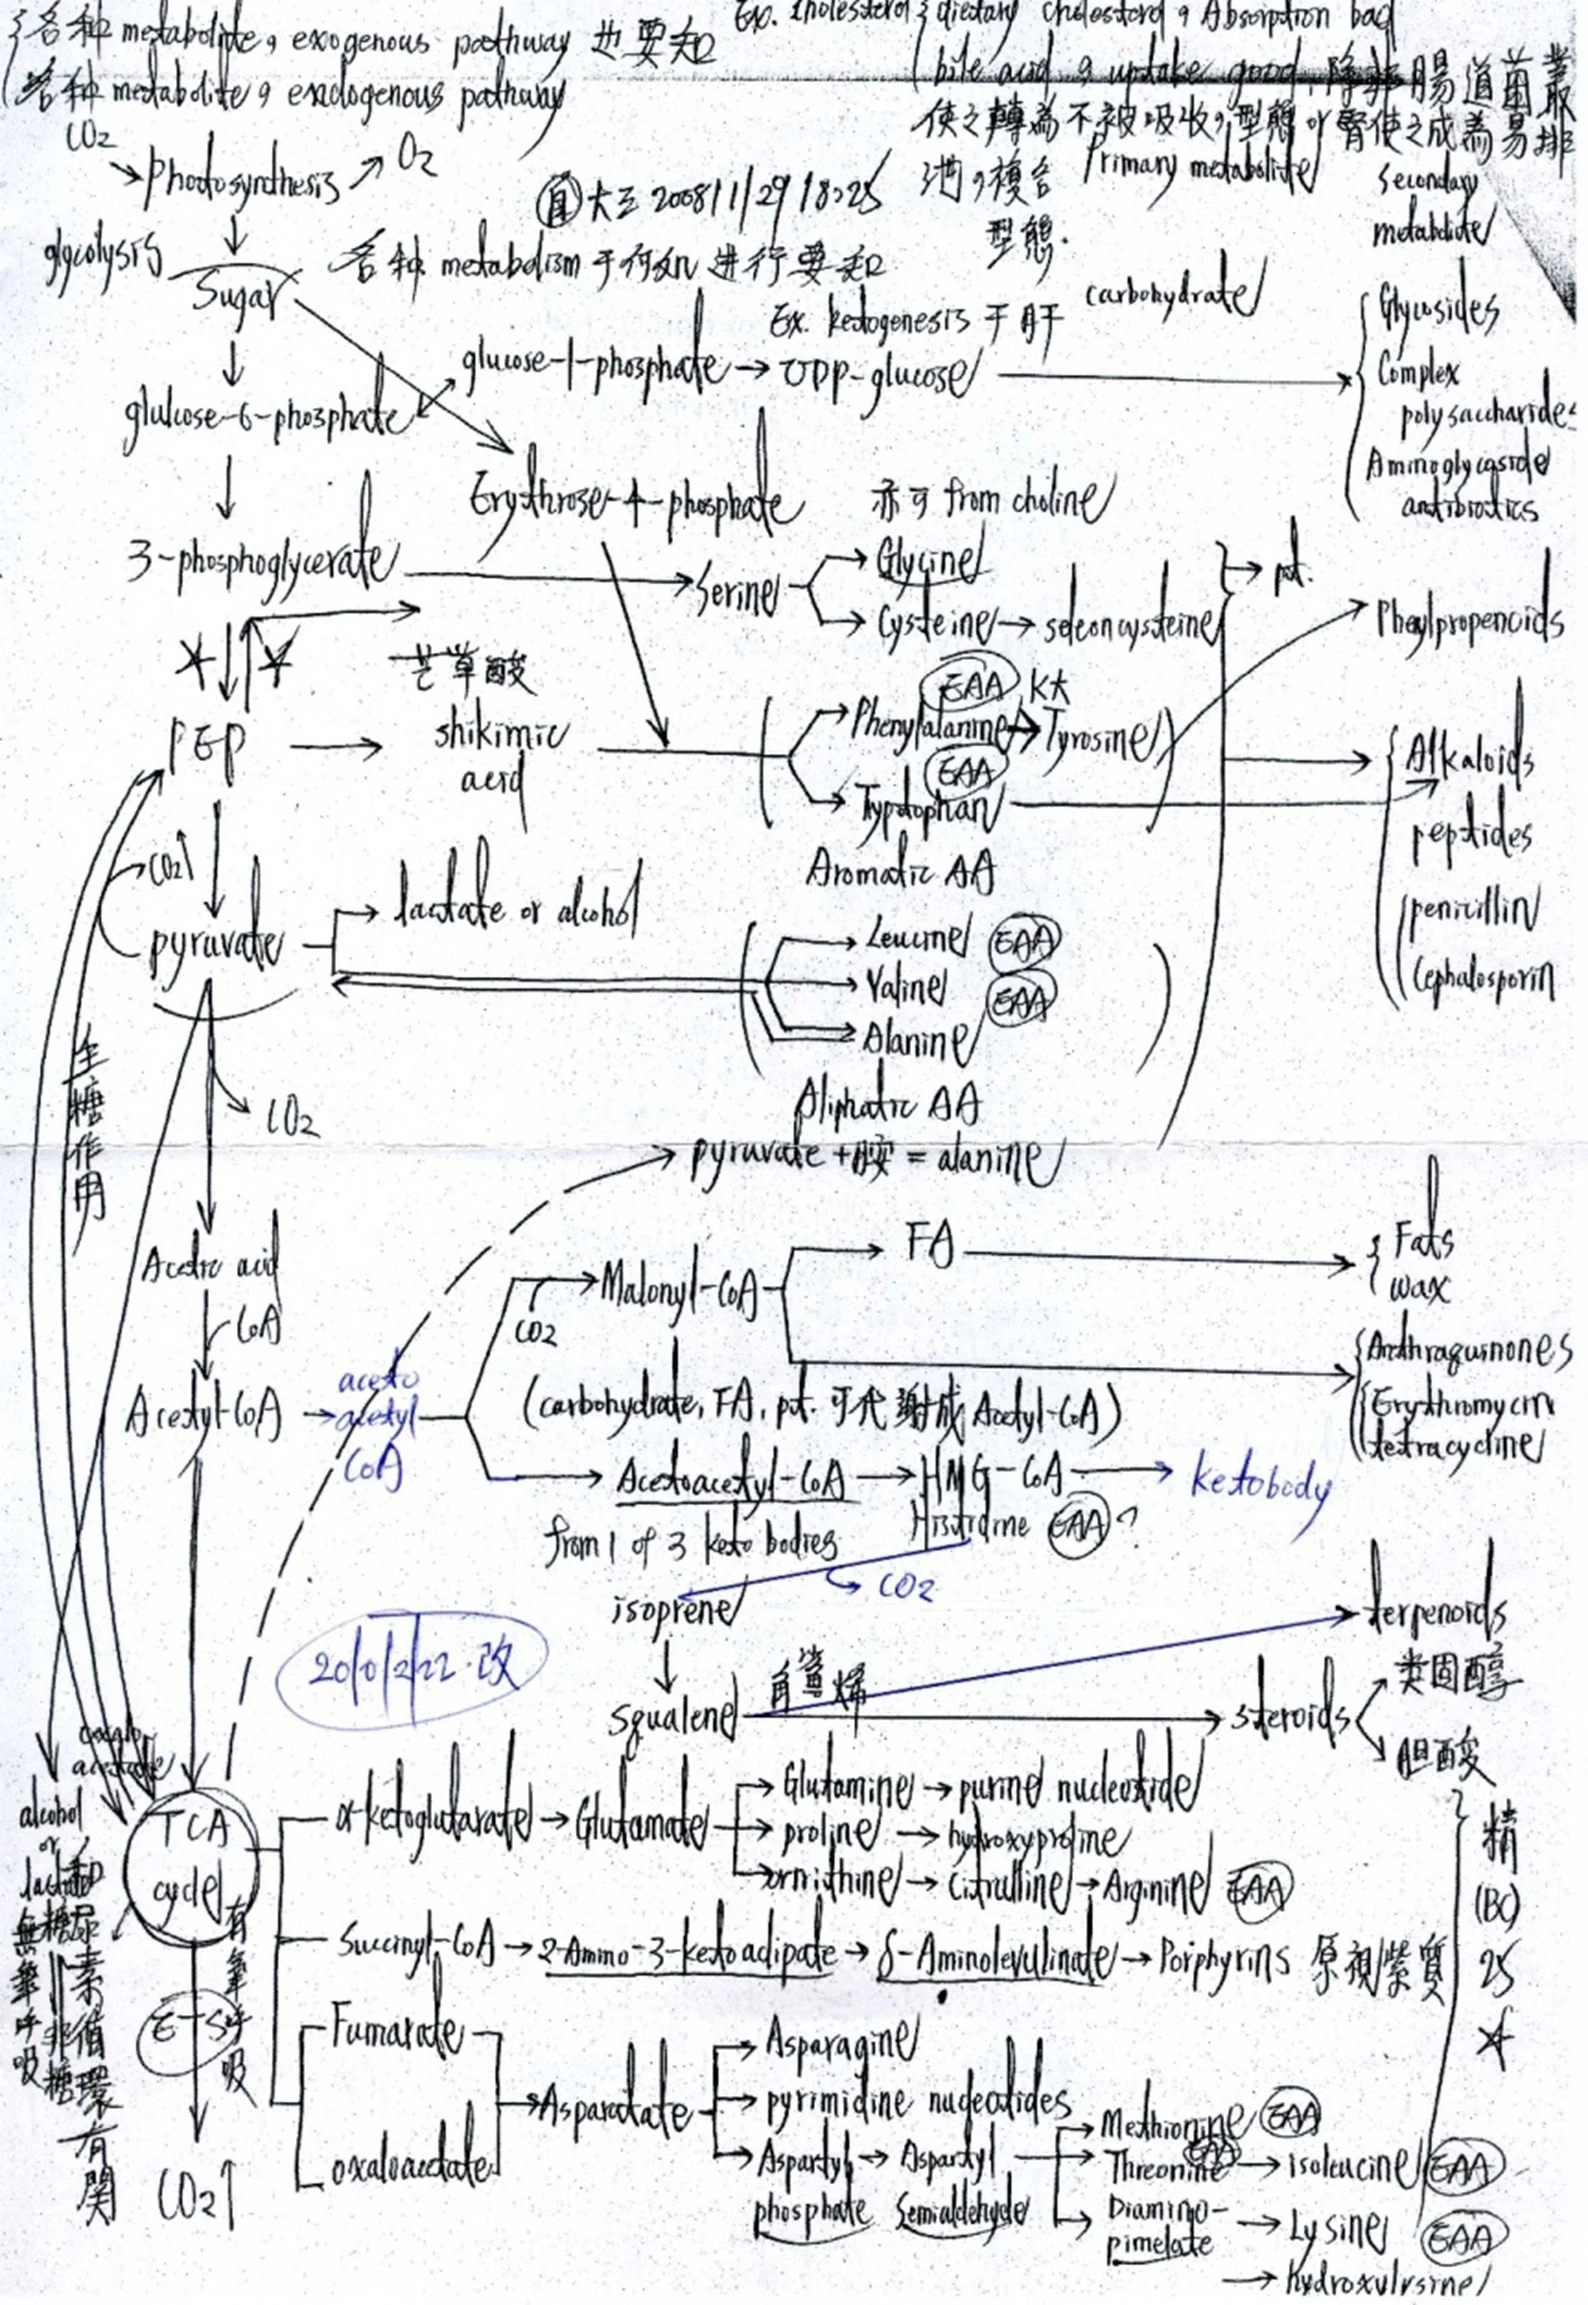 各种 metabolite, exogenous pathway 也要知
Ex. cholesterol { dietary cholesterol, Absorption bad
各种 metabolite, endogenous pathway
bile acid, uptake good, 腸道菌叢
使之轉為不被吸收,型態 or 腎使之成為易排
泄,複合
型態.
CO2
Photosynthesis
O2
大三 2008/1/29/18:25
Primary metabolite
Secondary
metabolite
glycolysis
Sugar
各种 metabolism 于何处进行要知
Ex. ketogenesis 于肝
carbohydrate
Glycosides
Complex
polysaccharides
Aminoglycoside
antibiotics
glucose-1-phosphate → UDP-glucose
glulcose-6-phosphate
Erythrose-4-phosphate
亦可 from choline
3-phosphoglycerate
Serine
Glycine
Cysteine → seleoncysteine
→ pt.
Pheylpropenoids
芒草酸
PEP → shikimic
acid
EAA
Phenylalanine → Tyrosine
EAA
Typtophan
Aromatic AA
Alkaloids
peptides
penicillin
Cephalosporin
CO2
pyruvate
lactate or alcohol
Leucine EAA
Valine EAA
Alanine
Aliphatic AA
生糖作用
CO2
pyruvate + 胺 = alanine
Acetic acid
CoA
Acetyl-CoA →
aceto
acetyl
CoA
CO2
Malonyl-CoA
FA
Fats
wax
Anthraquinones
Erythromycin
tetracycline
(carbohydrate, FA, pt. 可代謝成 Acetyl-CoA)
Acetoacetyl-CoA → HMG-CoA → ketobody
from 1 of 3 keto bodies
Histidine EAA ?
CO2
isoprene
terpenoids
2010/2/22.改
squalene
角鯊烯
steroids
类固醇
胆酸
TCA
cycle
alcohol
or
lactate
無氧呼吸
糖
非糖
和尿素循環有関
有氧呼吸
ETS
CO2↑
α-ketoglutarate → Glutamate
Glutamine → purine nucleotide
proline → hydroxyproline
ornithine → citrulline → Arginine EAA
Succinyl-CoA → 2-Amino-3-ketoadipate → δ-Aminolevulinate → Porphyrins 原視紫質
精
(BC)
25
Fumarate
oxaloacetate
Aspartate
Asparagine
pyrimidine nucleotides
Aspartyl → Aspartyl
phosphate Semialdehyde
Methionine EAA
Threonine EAA → isoleucine EAA
Diamino-
pimelate → Lysine EAA
→ hydroxylysine